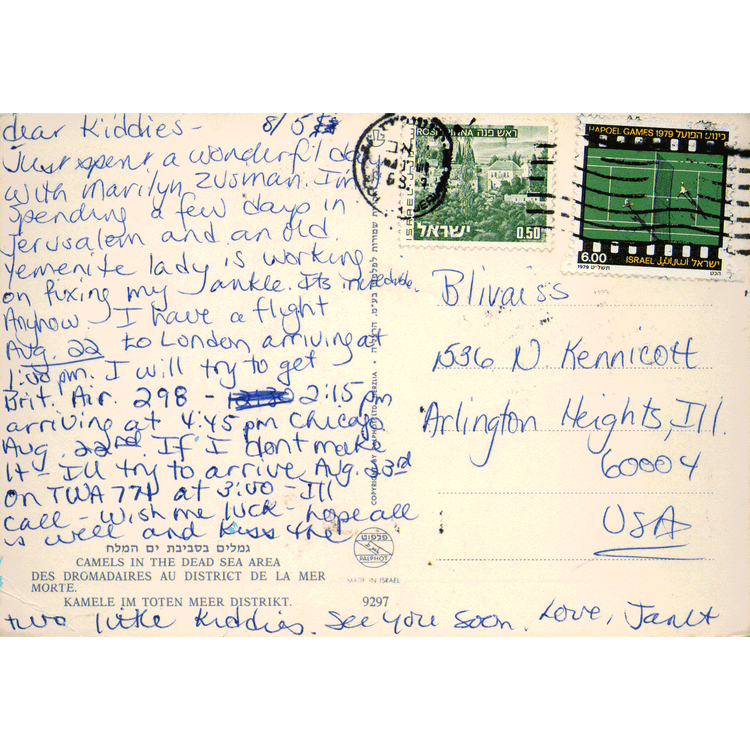 dear Kiddies - 8/5
Just spent a wonderful day
with Marilyn Zusman. I'm
spending a few days in
Jerusalem and an old
Yemenite lady is working
on fixing my ankle. Its incredible.
Anyhow. I have a flight
Aug. 22 to London arriving at
1:00 pm. I will try to get
Brit. Air. 298 - 2:15 pm
arriving at 4:45 pm Chicago
Aug. 22nd. If I dont make
it - I'll try to arrive Aug. 23rd
on TWA 771 at 3:00 - I'll
call - wish me luck - hope all
is well and kiss the
two little kiddies. See you soon. Love, Janet
גמלים בסביבת ים המלח
CAMELS IN THE DEAD SEA AREA
DES DROMADAIRES AU DISTRICT DE LA MER
MORTE.
KAMELE IM TOTEN MEER DISTRIKT. 9297
פלפוט
PALPHOT
MADE IN ISRAEL
ROSH PINNA ראש פנה
ISRAEL
ישראל 0.50
HAPOEL GAMES 1979 כינוס הפועל
6.00 ISRAEL اسرائيل ישראל
1979 תשל"ט
Blivaiss
1536 N Kennicott
Arlington Heights, Ill.
60004
USA